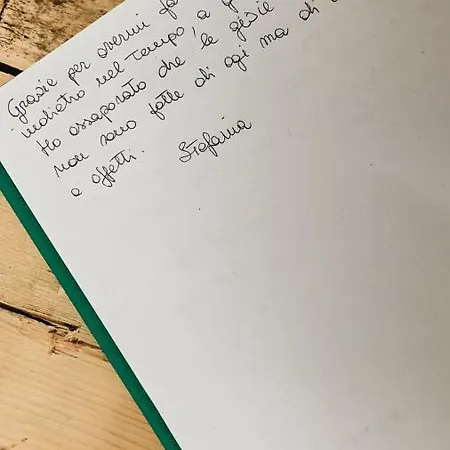 Grazie per avermi fa
indietro nel tempo, a q
Ho assaporato che le gioie
non sono fatte di agi ma di
e affetti.
Stefania